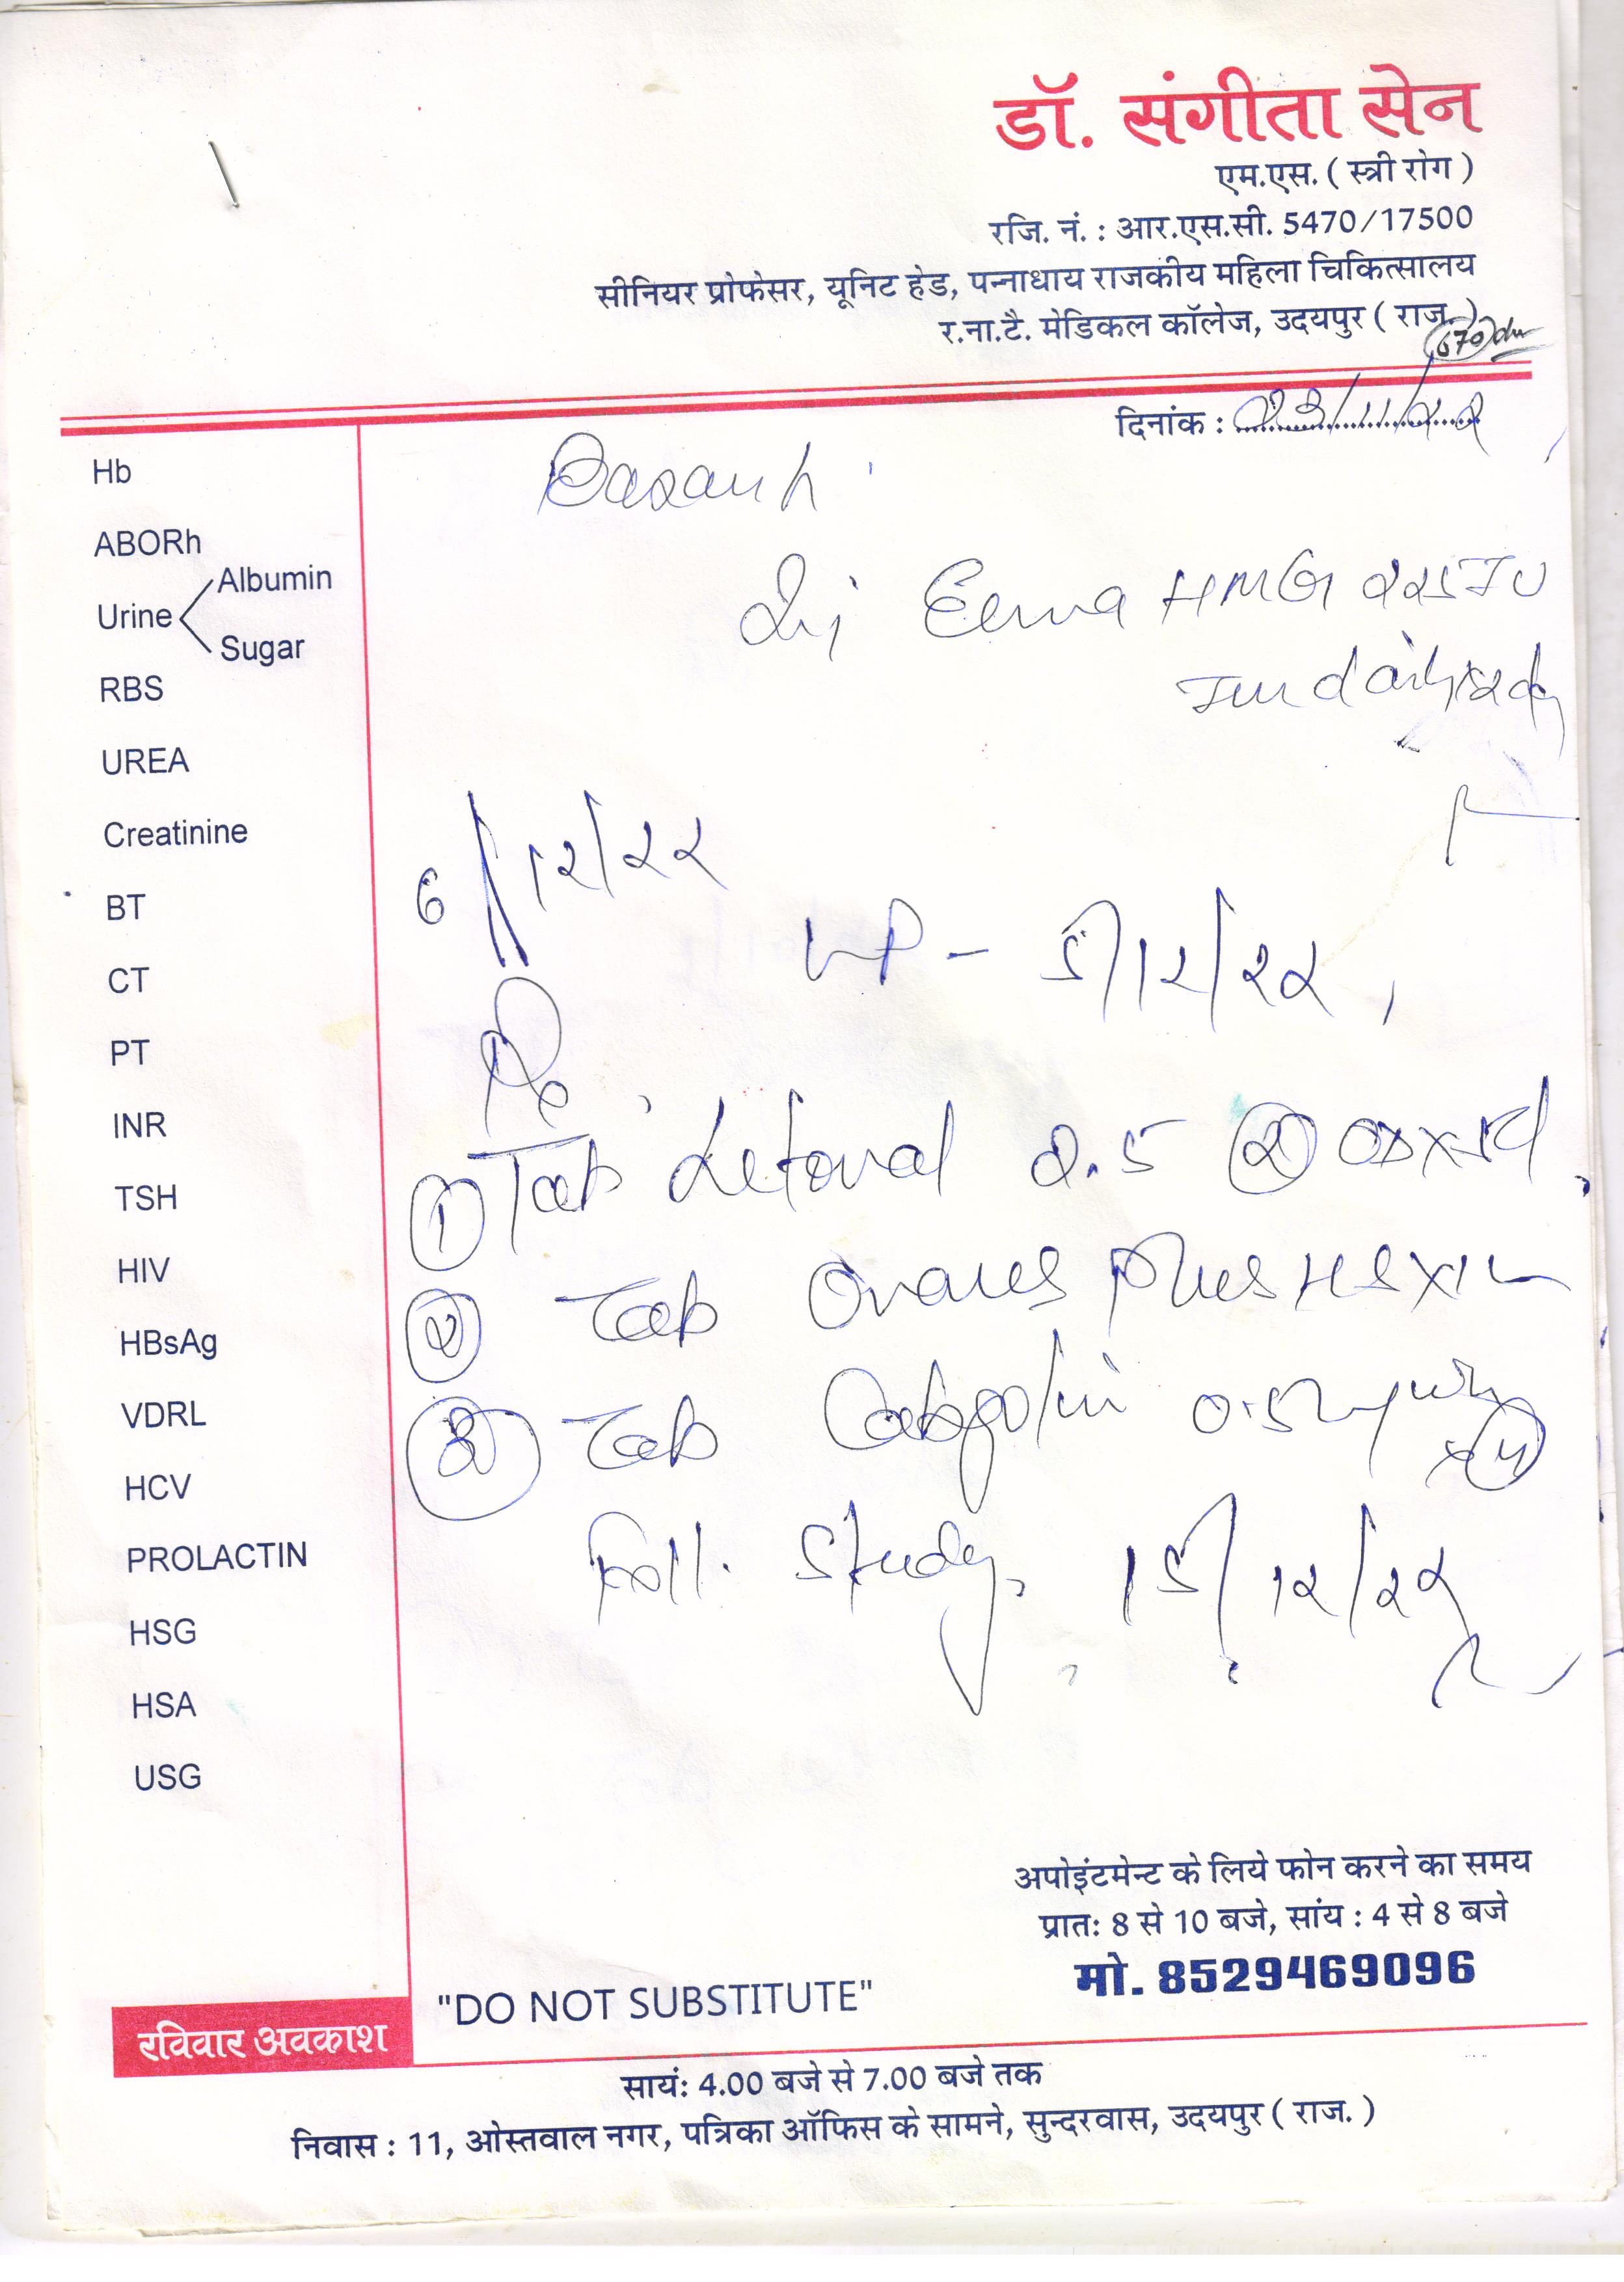 डॉ. संगीता सेन
एम.एस. ( स्त्री रोग )
रजि. नं. : आर.एस.सी. 5470/17500
सीनियर प्रोफेसर, यूनिट हेड, पन्नाधाय राजकीय महिला चिकित्सालय
र.ना.टै. मेडिकल कॉलेज, उदयपुर ( राज. )
670
दिनांक : 23/11/22
Hb
ABORh
Urine
Albumin
Sugar
RBS
UREA
Creatinine
BT
CT
PT
INR
TSH
HIV
HBsAg
VDRL
HCV
PROLACTIN
HSG
HSA
USG
Inj HMG 225 IU
daily
6/12/22
5/12/22
① Tab 2.5 ② OD x 5d
② Tab Ovares Plus HS x
③ Tab Cabgolin 0.5
Foll. Study, 15/12/22
अपोइंटमेन्ट के लिये फोन करने का समय
प्रातः 8 से 10 बजे, सांय : 4 से 8 बजे
मो. 8529469096
"DO NOT SUBSTITUTE"
रविवार अवकाश
सायं: 4.00 बजे से 7.00 बजे तक
निवास : 11, ओस्तवाल नगर, पत्रिका ऑफिस के सामने, सुन्दरवास, उदयपुर ( राज. )